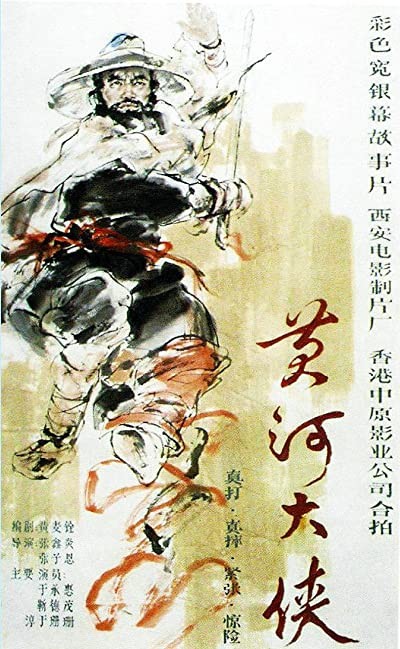 彩色宽银幕故事片 西安电影制片厂 香港中原影业公司合拍
黄河大侠
真打·真摔·紧张·惊险
编剧 黄麦铨
导演 张鑫炎
张子恩
主要演员:
于承惠
靳德茂
淳于珊珊